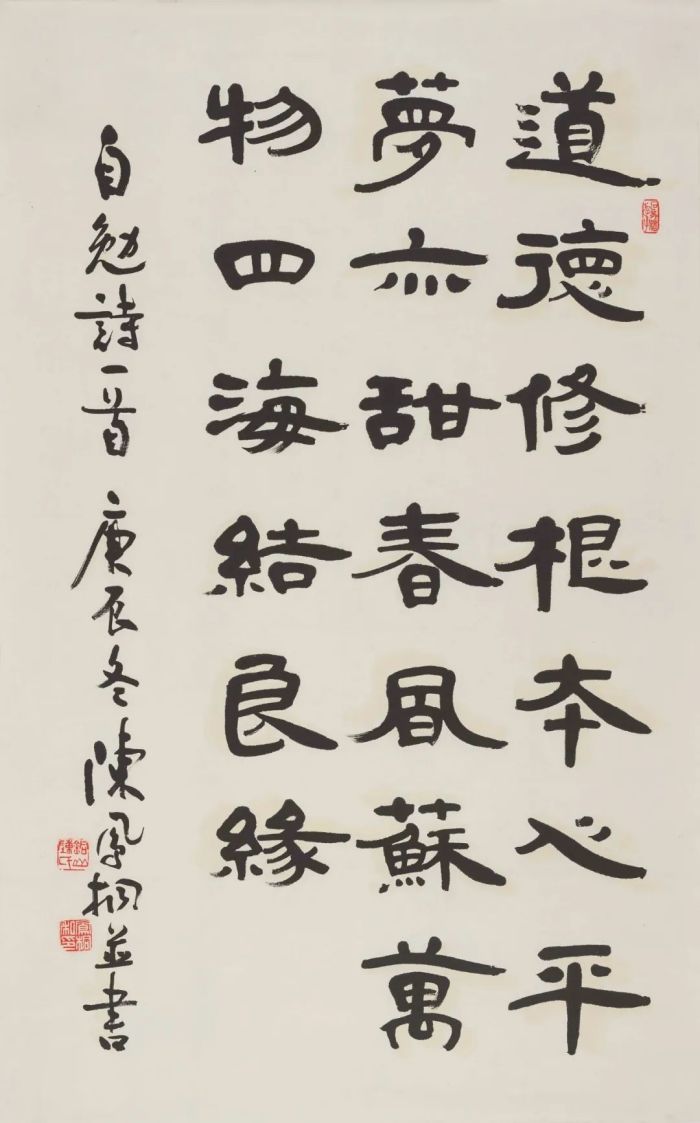 道德修根本心平
夢亦甜春風蘇萬
物四海結良緣
自勉詩一首 庚辰冬陳鳳桐並書